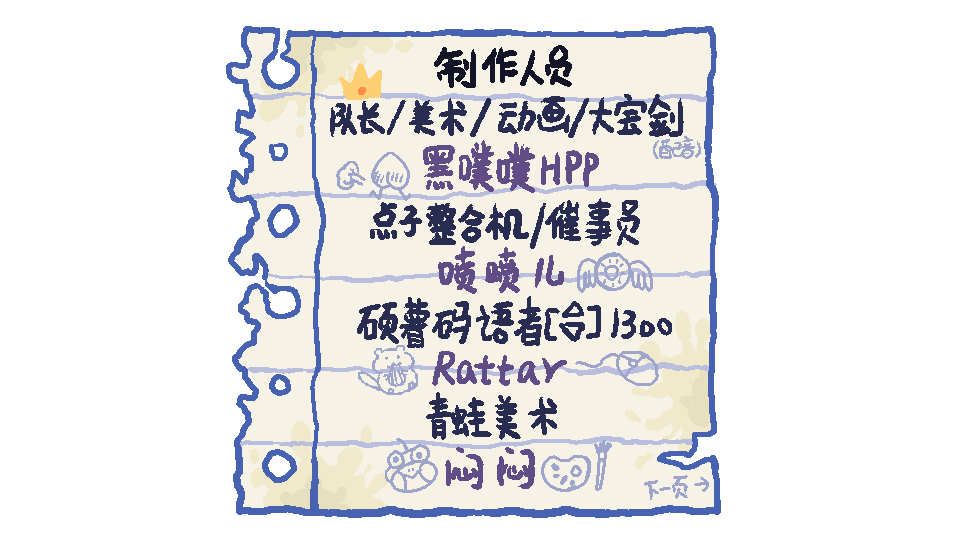 制作人员
队长/美术/动画/大宝剑
(配音)
黑噗噗HPP
点子整合机/催事员
喷喷儿
硕薯码语者[合]1300
Rattar
青蛙美术
闷闷
下一页→